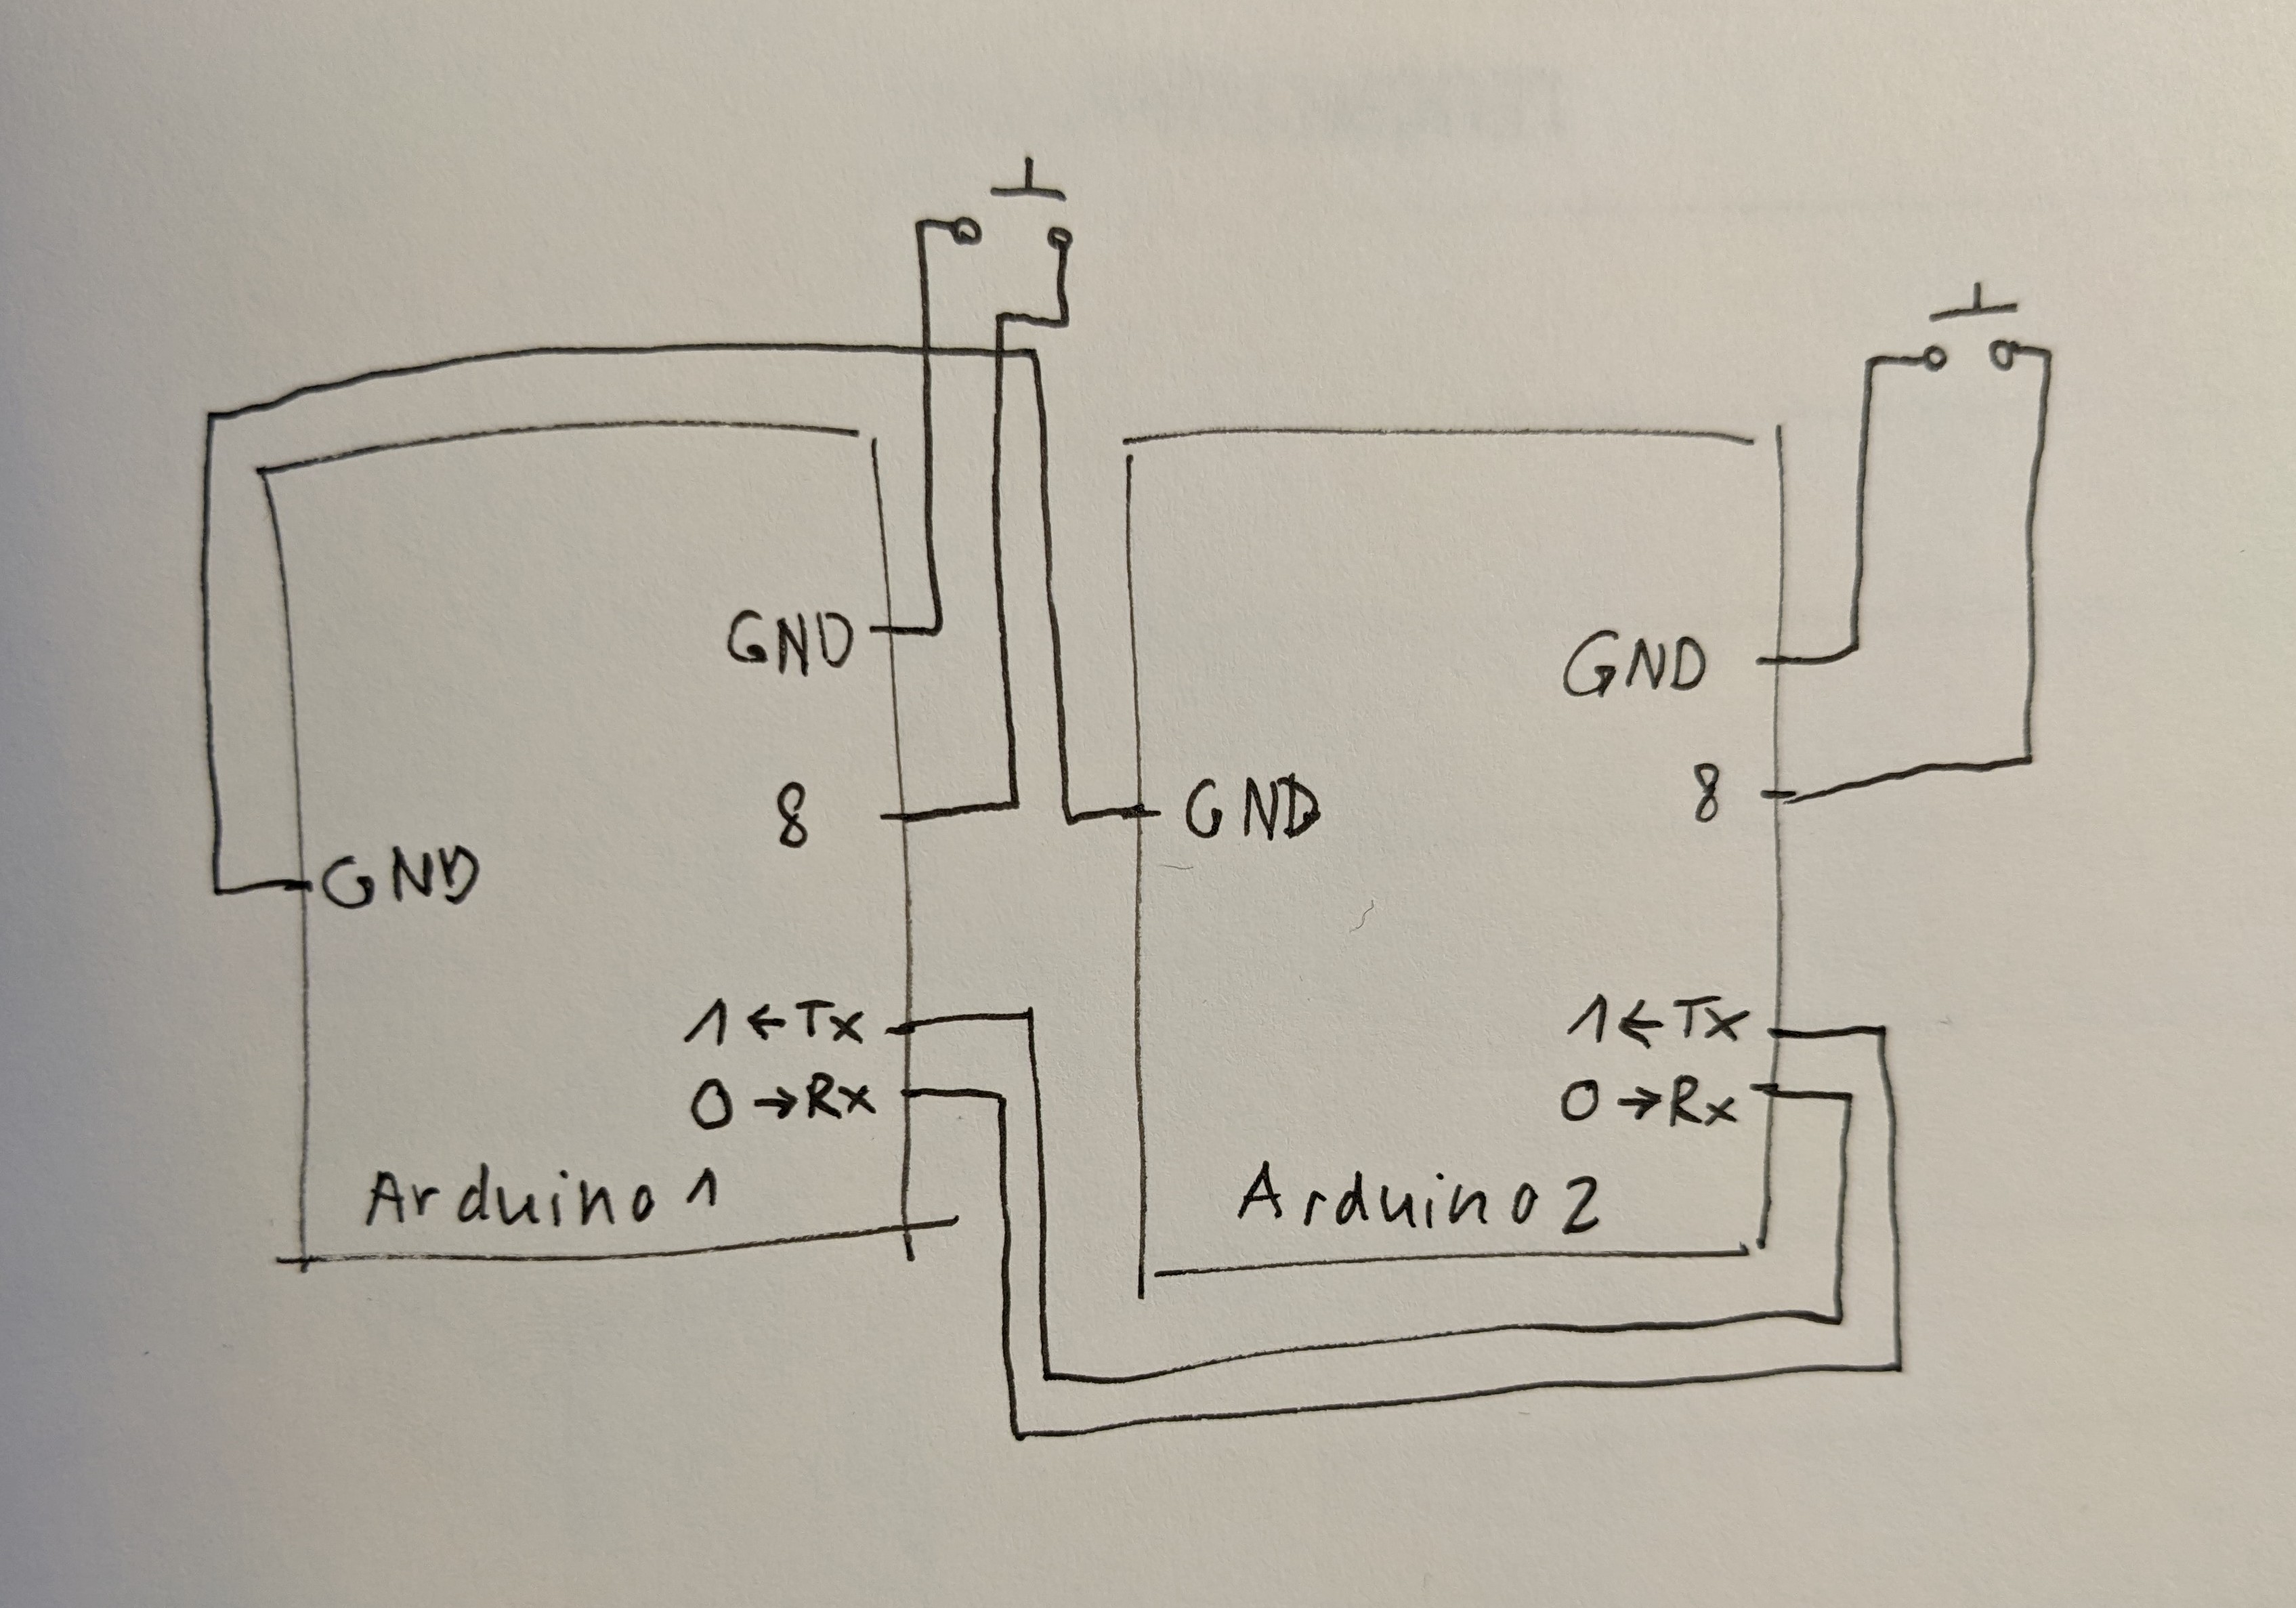 GND
8
GND
1←Tx
0→Rx
Arduino 1
GND
8
GND
1←Tx
0→Rx
Arduino 2